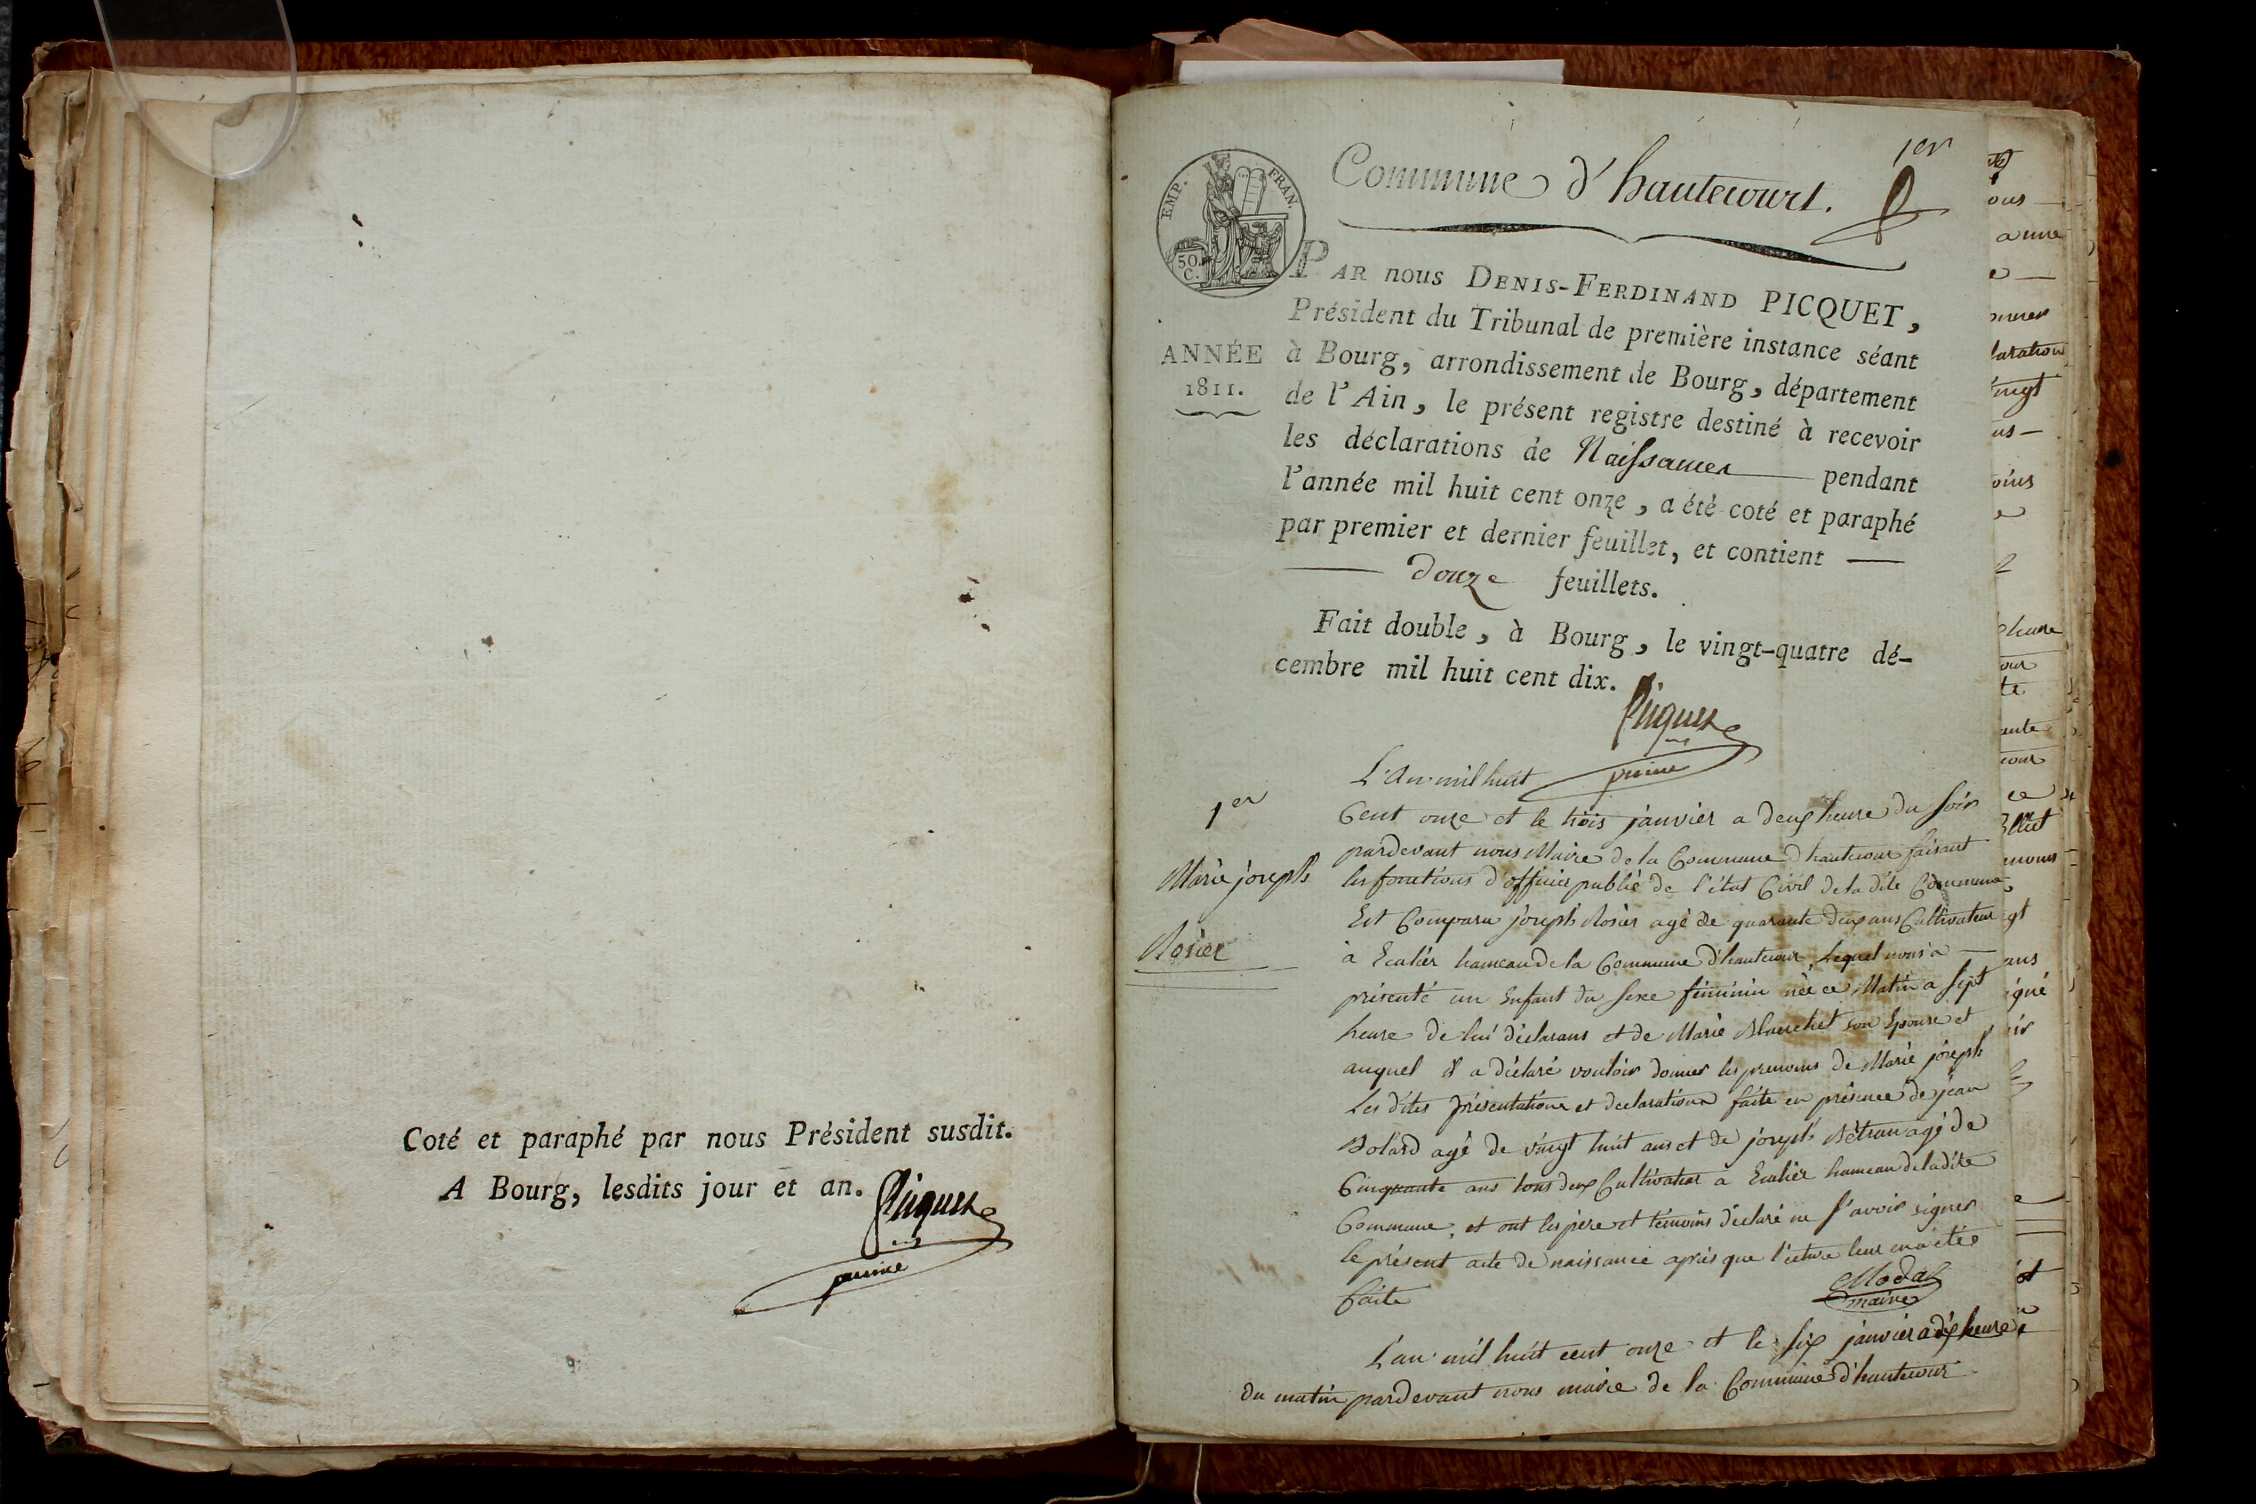 Coté et paraphé par nous Président susdit.
A Bourg, lesdits jour et an.
Picquet
1er
Commune d'hautecourt.
EMP. FRAN.
50.
C.
PAR nous DENIS-FERDINAND PICQUET,
Président du Tribunal de première instance séant
ANNÉE
1811.
à Bourg, arrondissement de Bourg, département
de l'Ain, le présent registre destiné à recevoir
les déclarations de Naissances pendant
l'année mil huit cent onze, a été coté et paraphé
par premier et dernier feuillet, et contient —
— douze feuillets.
Fait double, à Bourg, le vingt-quatre dé-
cembre mil huit cent dix.
Picquet
1er
Marie joseph
Rosier
L'An mil huit
Cent onze et le trois janvier a deux heure du soir
pardevant nous Maire de la Commune d'hautecour faisant
les fonctions d'officier public de l'état Civil de la dite Commune
Est Comparu joseph Rosier agé de quarante deux ans Cultivateur
à hameau de la Commune d'hautecour, lequel nous a —
présenté un Enfant du sexe féminin née ce Matin a sept
heure de lui déclarans et de Marie son Epouse et
auquel il a déclaré vouloir donner les prenoms de Marie joseph
Les dites présentation et declaration faite en présence de jean
agé de vingt huit ans et de joseph agé de
Cinquante ans tous deux Cultivateur a hameau de la dite
Commune, et ont les père et témoins déclaré ne savoir signer
le présent acte de naissance après que lecture leur en a étée
faite
Modas
maire
L'an mil huit cent onze et le six janvier a dix heure
du matin pardevant nous maire de la Commune d'hautecour